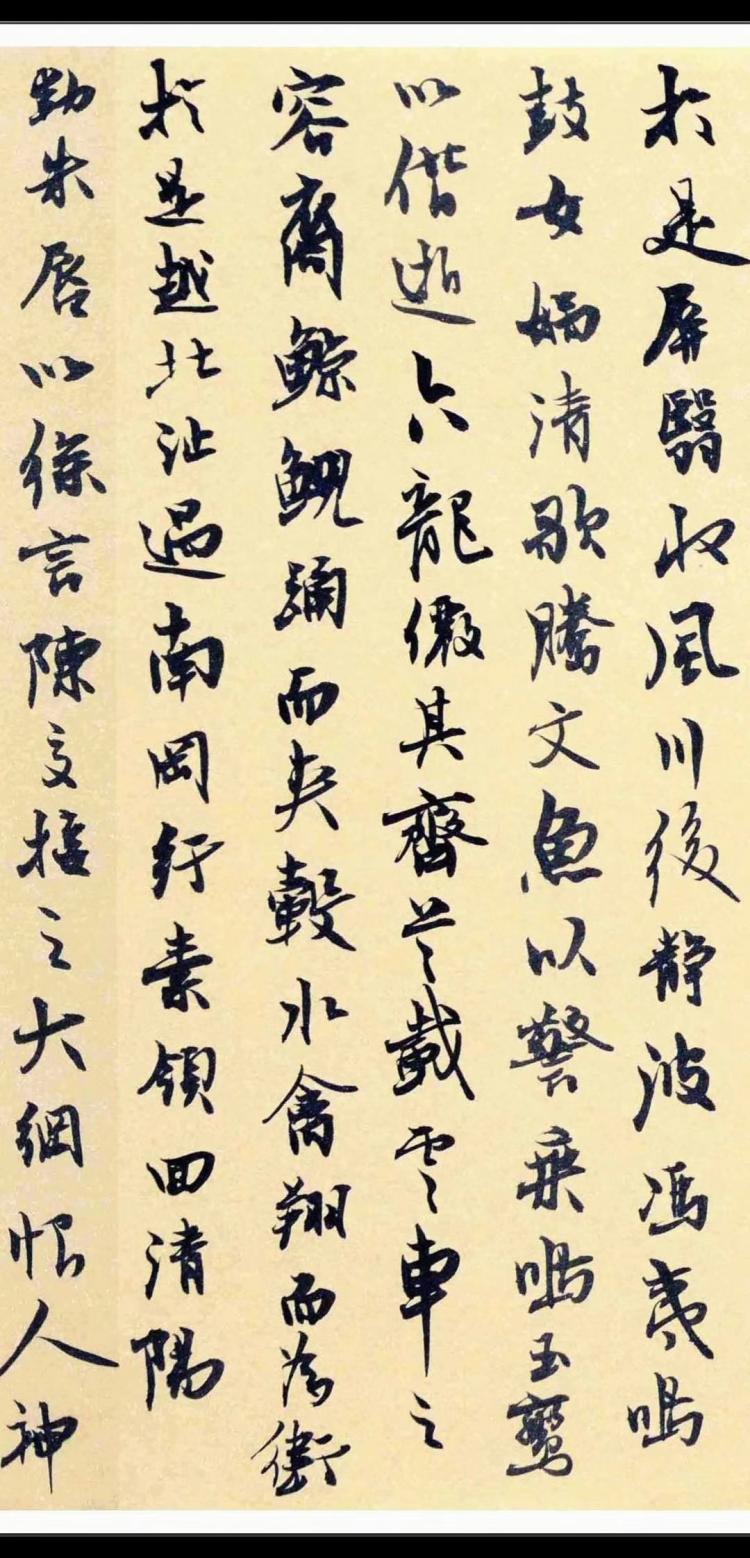 於是屏翳收風川後靜波馮夷鳴
鼓女媧清歌騰文魚以警乘鳴玉鸞
以偕逝六龍儼其齊首載雲車之
容裔鯨鯢踴而夾轂水禽翔而為衛
於是越北沚過南岡紆素領回清陽
動朱唇以徐言陳交接之大綱恨人神